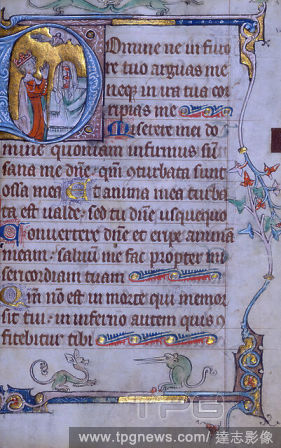 Domine ne in furo
re tuo arguas me
neq; in ira tua cor
ripias me
Miserere mei do
mine quoniam infirmus sū
sana me dn̄e: qm̄ ↄturbata sunt
ossa mea Et anima mea turba
ta est ualde: sed tu dn̄e usquequo
Conuertere dn̄e et eripe animā
meam: saluū me fac propter mi
sericordiam tuam
Qm̄ nō est in morte qui memor
sit tui: in inferno autem quis ↄ
fitebitur tibi
TPG
www.tpgnews.com/達志影像